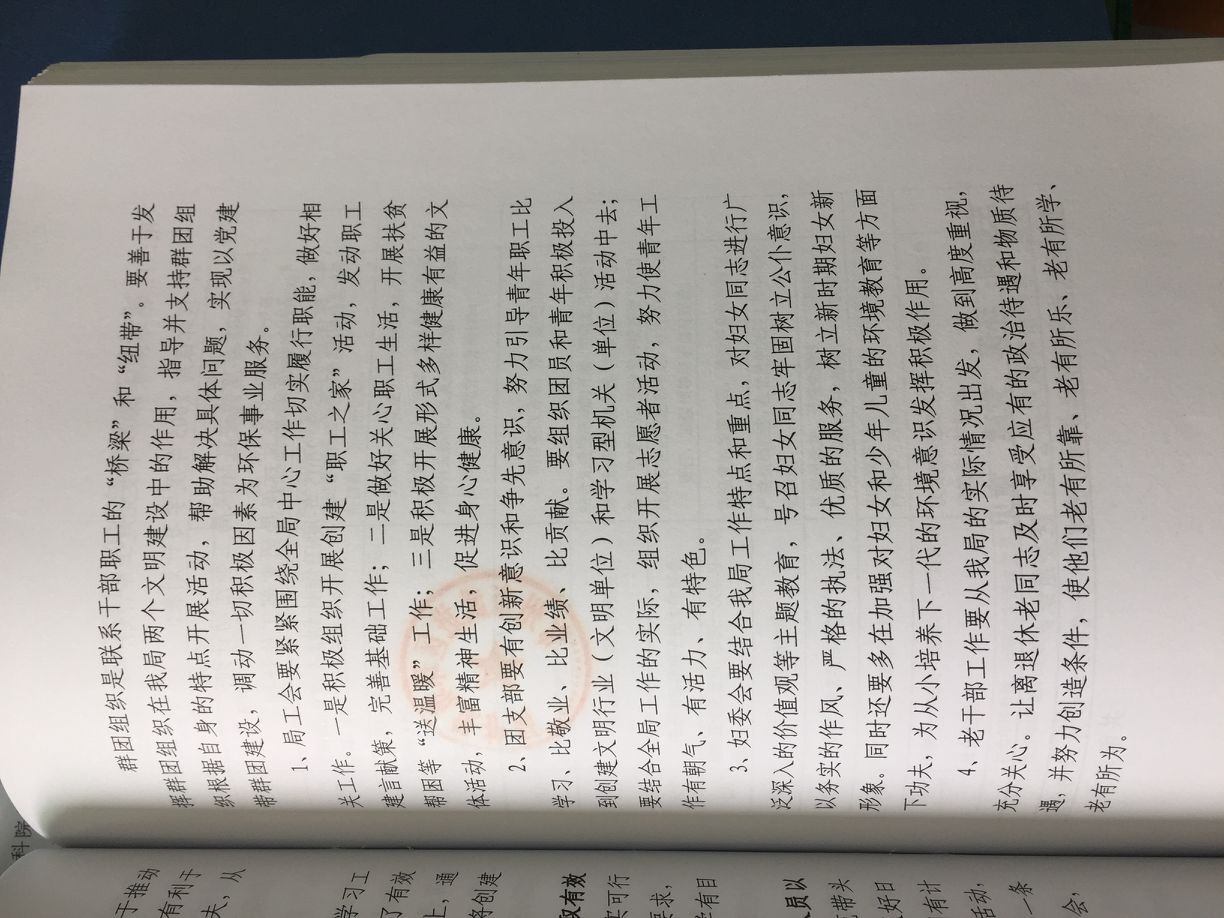 群团组织是联系干部职工的“桥梁”和“纽带”。要善于发
挥群团组织在我局两个文明建设中的作用，指导并支持群团组
织根据自身的特点开展活动，帮助解决具体问题，实现以党建
带群团建设，调动一切积极因素为环保事业服务。
1、局工会要紧紧围绕全局中心工作切实履行职能，做好相
关工作。一是积极组织开展创建“职工之家”活动，发动职工
建言献策，完善基础工作；二是做好关心职工生活，开展扶贫
帮困等“送温暖”工作；三是积极开展形式多样健康有益的文
体活动，丰富精神生活，促进身心健康。
2、团支部要有创新意识和争先意识，努力引导青年职工比
学习、比敬业、比业绩、比贡献。要组织团员和青年积极投入
到创建文明行业（文明单位）和学习型机关（单位）活动中去；
要结合全局工作的实际，组织开展志愿者活动，努力使青年工
作有朝气、有活力、有特色。
3、妇委会要结合我局工作特点和重点，对妇女同志进行广
泛深入的价值观等主题教育，号召妇女同志牢固树立公仆意识，
以务实的作风、严格的执法、优质的服务，树立新时期妇女新
形象。同时还要多在加强对妇女和少年儿童的环境教育等方面
下功夫，为从小培养下一代的环境意识发挥积极作用。
4、老干部工作要从我局的实际情况出发，做到高度重视，
充分关心。让离退休老同志及时享受应有的政治待遇和物质待
遇，并努力创造条件，使他们老有所靠、老有所乐、老有所学、
老有所为。
科院
于推动
有利于
夫，从
学习工
了有效
上，通
将创建
取有效
实可行
要求，
人员以
带头
好日
有计
活动，
一条
会，